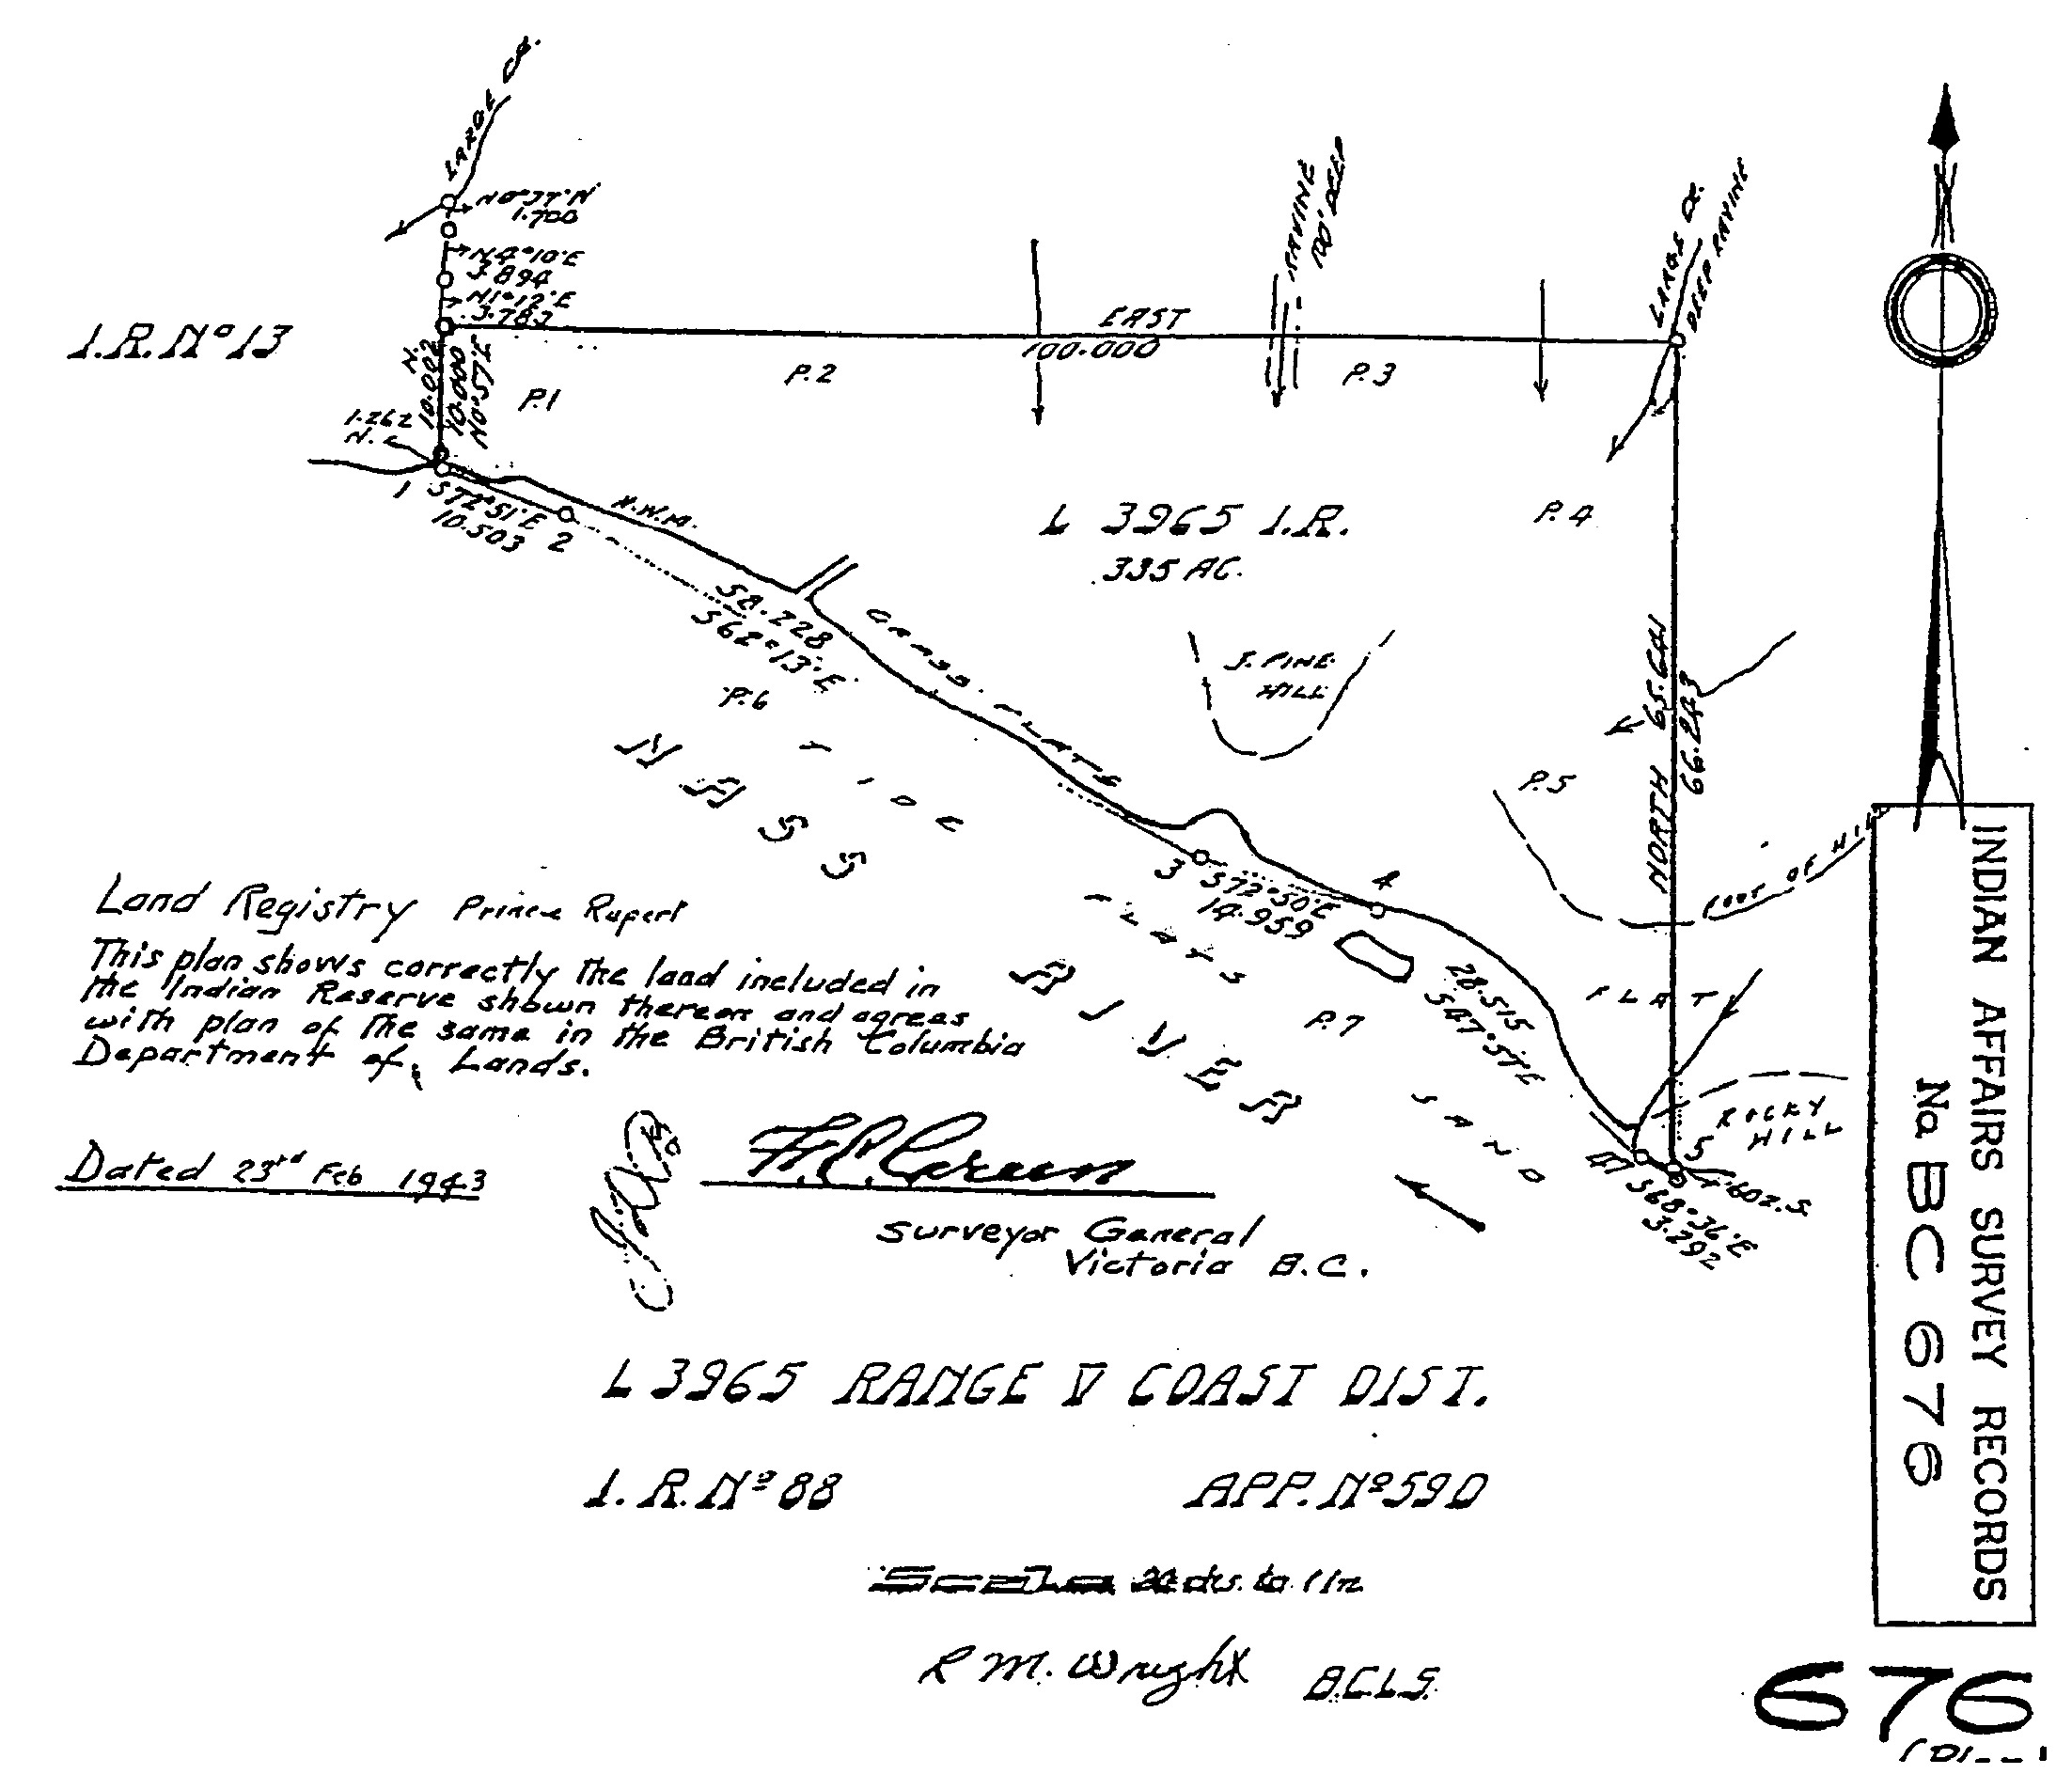 N4°10'E
3.894
N1°12'E
3.783
1.700
I.R. Nº 13
N.
10.002
10.000
N0°57'E
1.262
N.
P.1
P.2
EAST
100.000
P.3
RAVINE
100' DEEP
LARGE
DEEP RAVINE
1
S72°51'E
10.503
2
H.W.M.
L 3965 I.R.
335 AC.
P.4
58.228
S62°13'E
GRASS FLATS
P.6
J. PINE
HILL
NORTH 65.641
66.243
P.5
TIDE
NASS
RIVER
3
S72°50'E
14.959
4
FLATS
P.7
28.515
S47°57'E
SAND
FLAT
FOOT OF
ROCKY
HILL
5
S68°36'E
3.292
Land Registry Prince Rupert
This plan shows correctly the land included in
the Indian Reserve shown thereon and agrees
with plan of the same in the British Columbia
Department of Lands.
Dated 23rd Feb 1943
F.C. Green
Surveyor General
Victoria B.C.
L 3965 RANGE V COAST DIST.
I.R. Nº 88
APP. Nº 59D
Scale
to 1 In
R M. Wright B.C.L.S.
INDIAN AFFAIRS SURVEY RECORDS
No BC 676
676